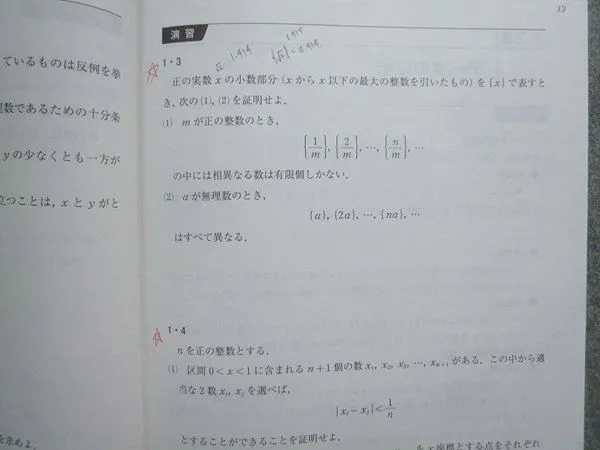 13
演習
√2 1.414
1.414
{√2} = 0.414
1・3
正の実数 x の小数部分 (x から x 以下の最大の整数を引いたもの) を {x} で表すと
き, 次の(1), (2)を証明せよ.
(1) m が正の整数のとき,
{1/m}, {2/m}, …, {n/m}, …
の中には相異なる数は有限個しかない.
(2) a が無理数のとき,
{a}, {2a}, …, {na}, …
はすべて異なる.
1・4
n を正の整数とする.
(1) 区間 0<x<1 に含まれる n+1 個の数 x₁, x₂, x₃, …, xₙ₊₁ がある. この中から適
当な 2 数 xᵢ, xⱼ を選べば,
|xᵢ−xⱼ|<1/n
とすることができることを証明せよ.
を x 座標とする点をそれぞれ
ているものは反例を挙
理数であるための十分条
y の少なくとも一方が
立つことは, x と y がと
を求めよ.